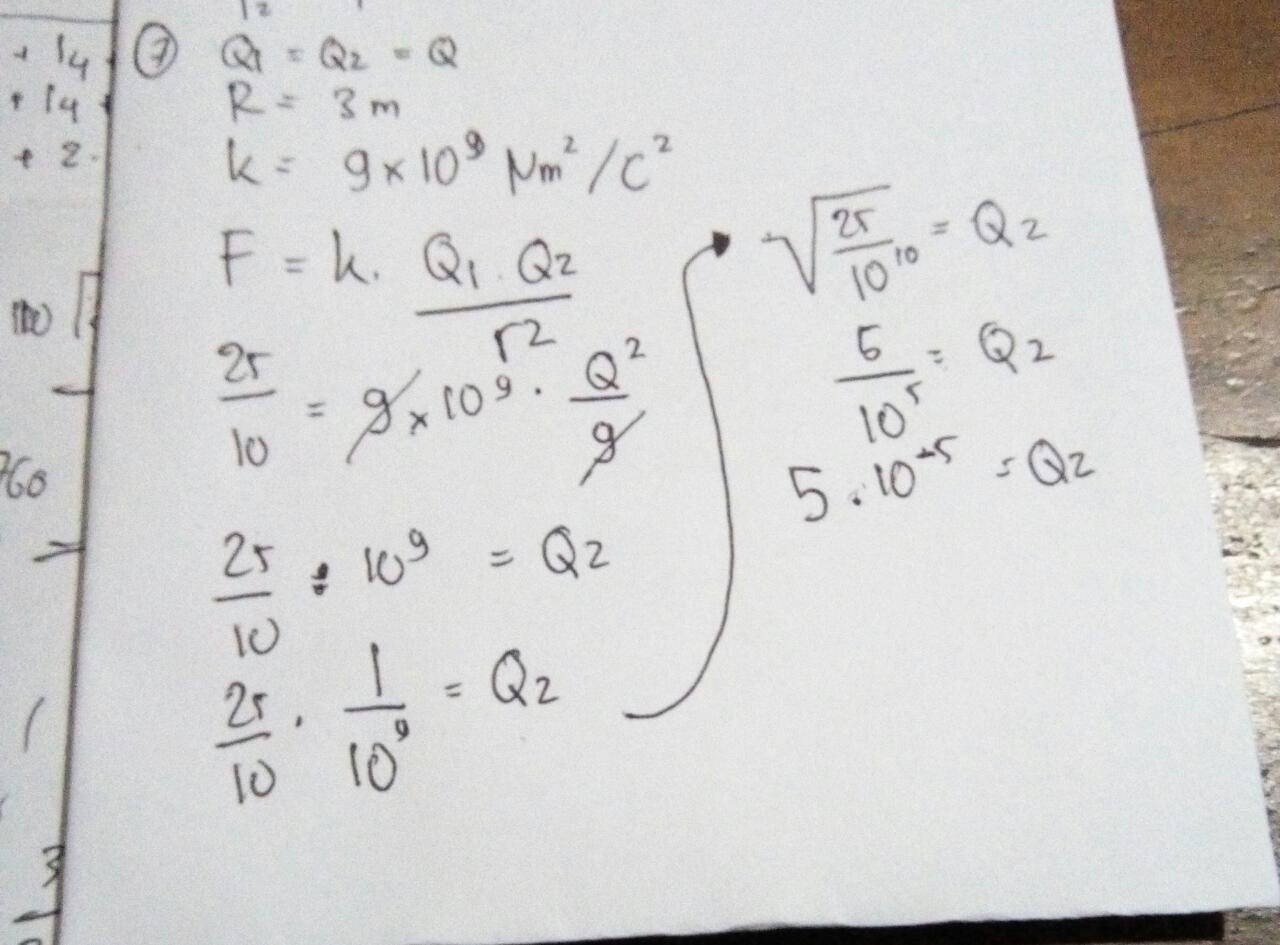 + 14
+ 14
+ 2
100
760
3
12
⑦ Q1 = Q2 = Q
R = 3 m
k = 9 x 10⁹ Nm²/C²
F = k. Q1 . Q2 / r²
25/10 = 9 x 10⁹ . Q²/9
25/10 : 10⁹ = Q2
25/10 . 1/10⁹ = Q2
√(25/10¹⁰) = Q2
5/10⁵ = Q2
5 . 10⁻⁵ = Q2